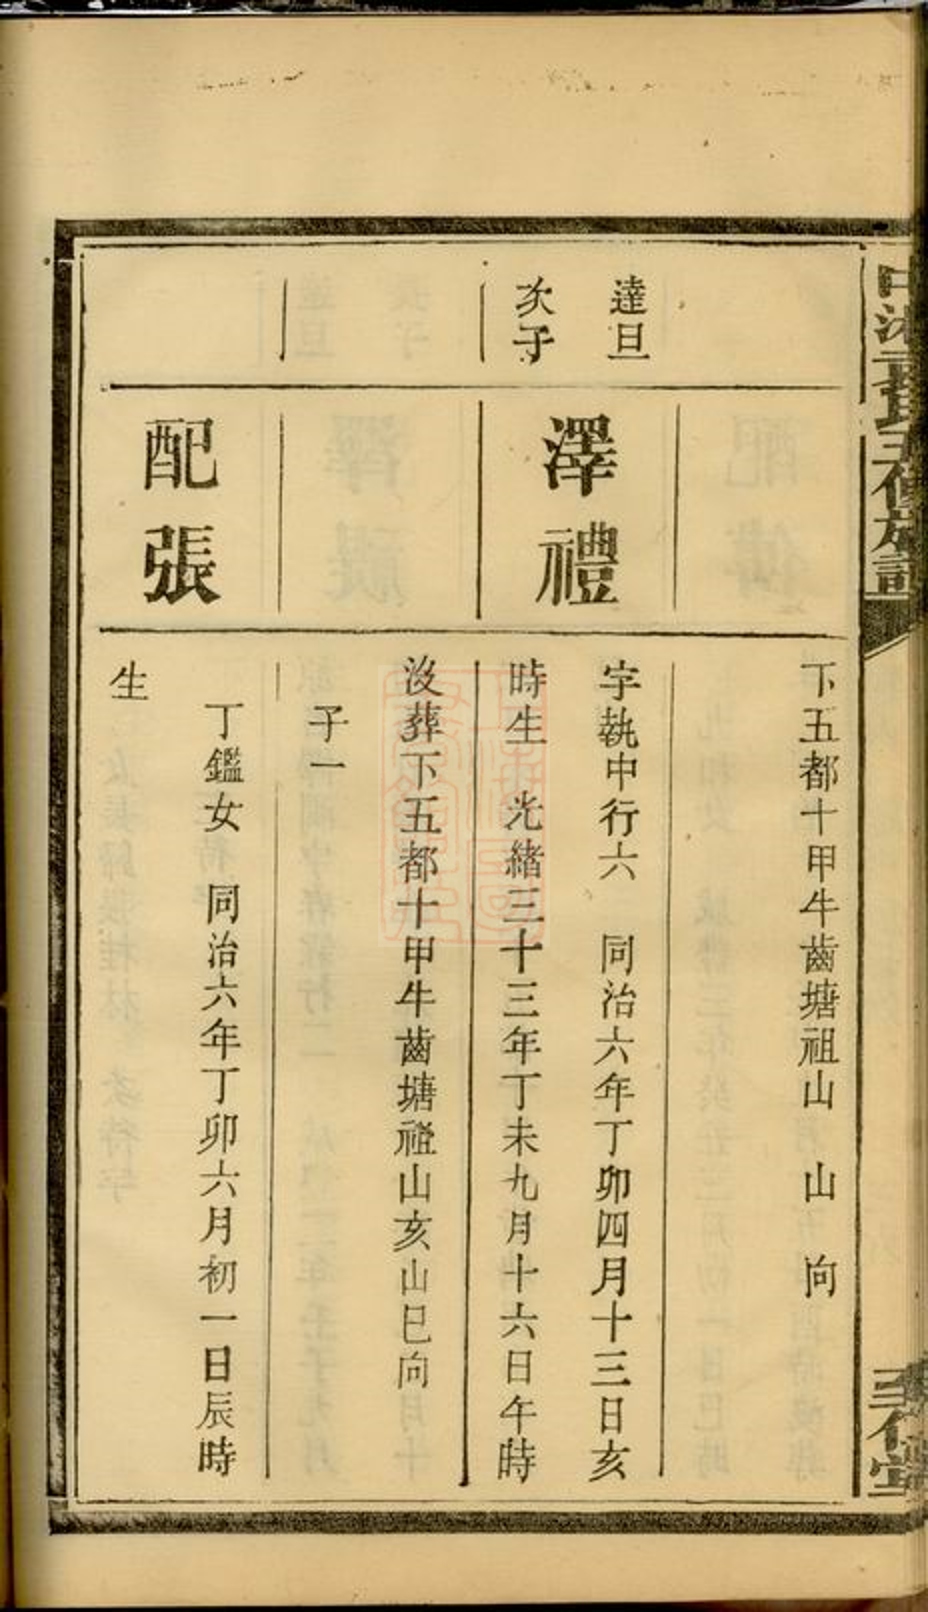 下五都十甲牛齒塘祖山　山　向
達旦
次子
澤禮
字執中行六　同治六年丁卯四月十三日亥
時生　光緒三十三年丁未九月十六日午時
沒葬下五都十甲牛齒塘祖山亥山巳向
子一
配張
丁鑑女　同治六年丁卯六月初一日辰時
生